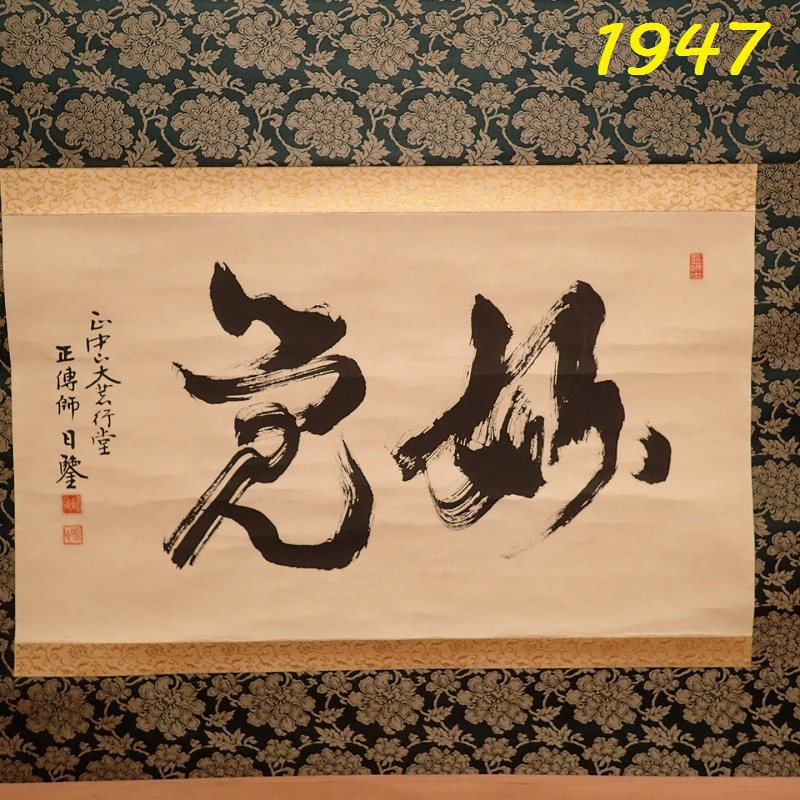 1947
妙覚
正中山大荒行堂
正傳師 日鑒